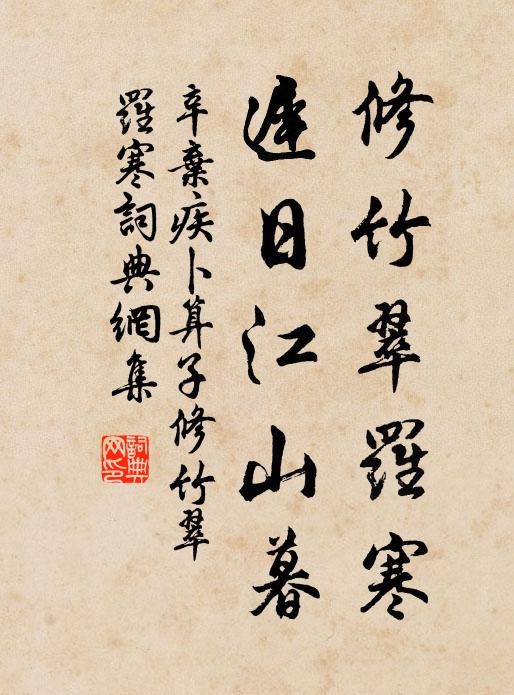 修竹翠羅寒
遲日江山暮
辛棄疾卜算子修竹翠
羅寒詞典網集
詞典
网印